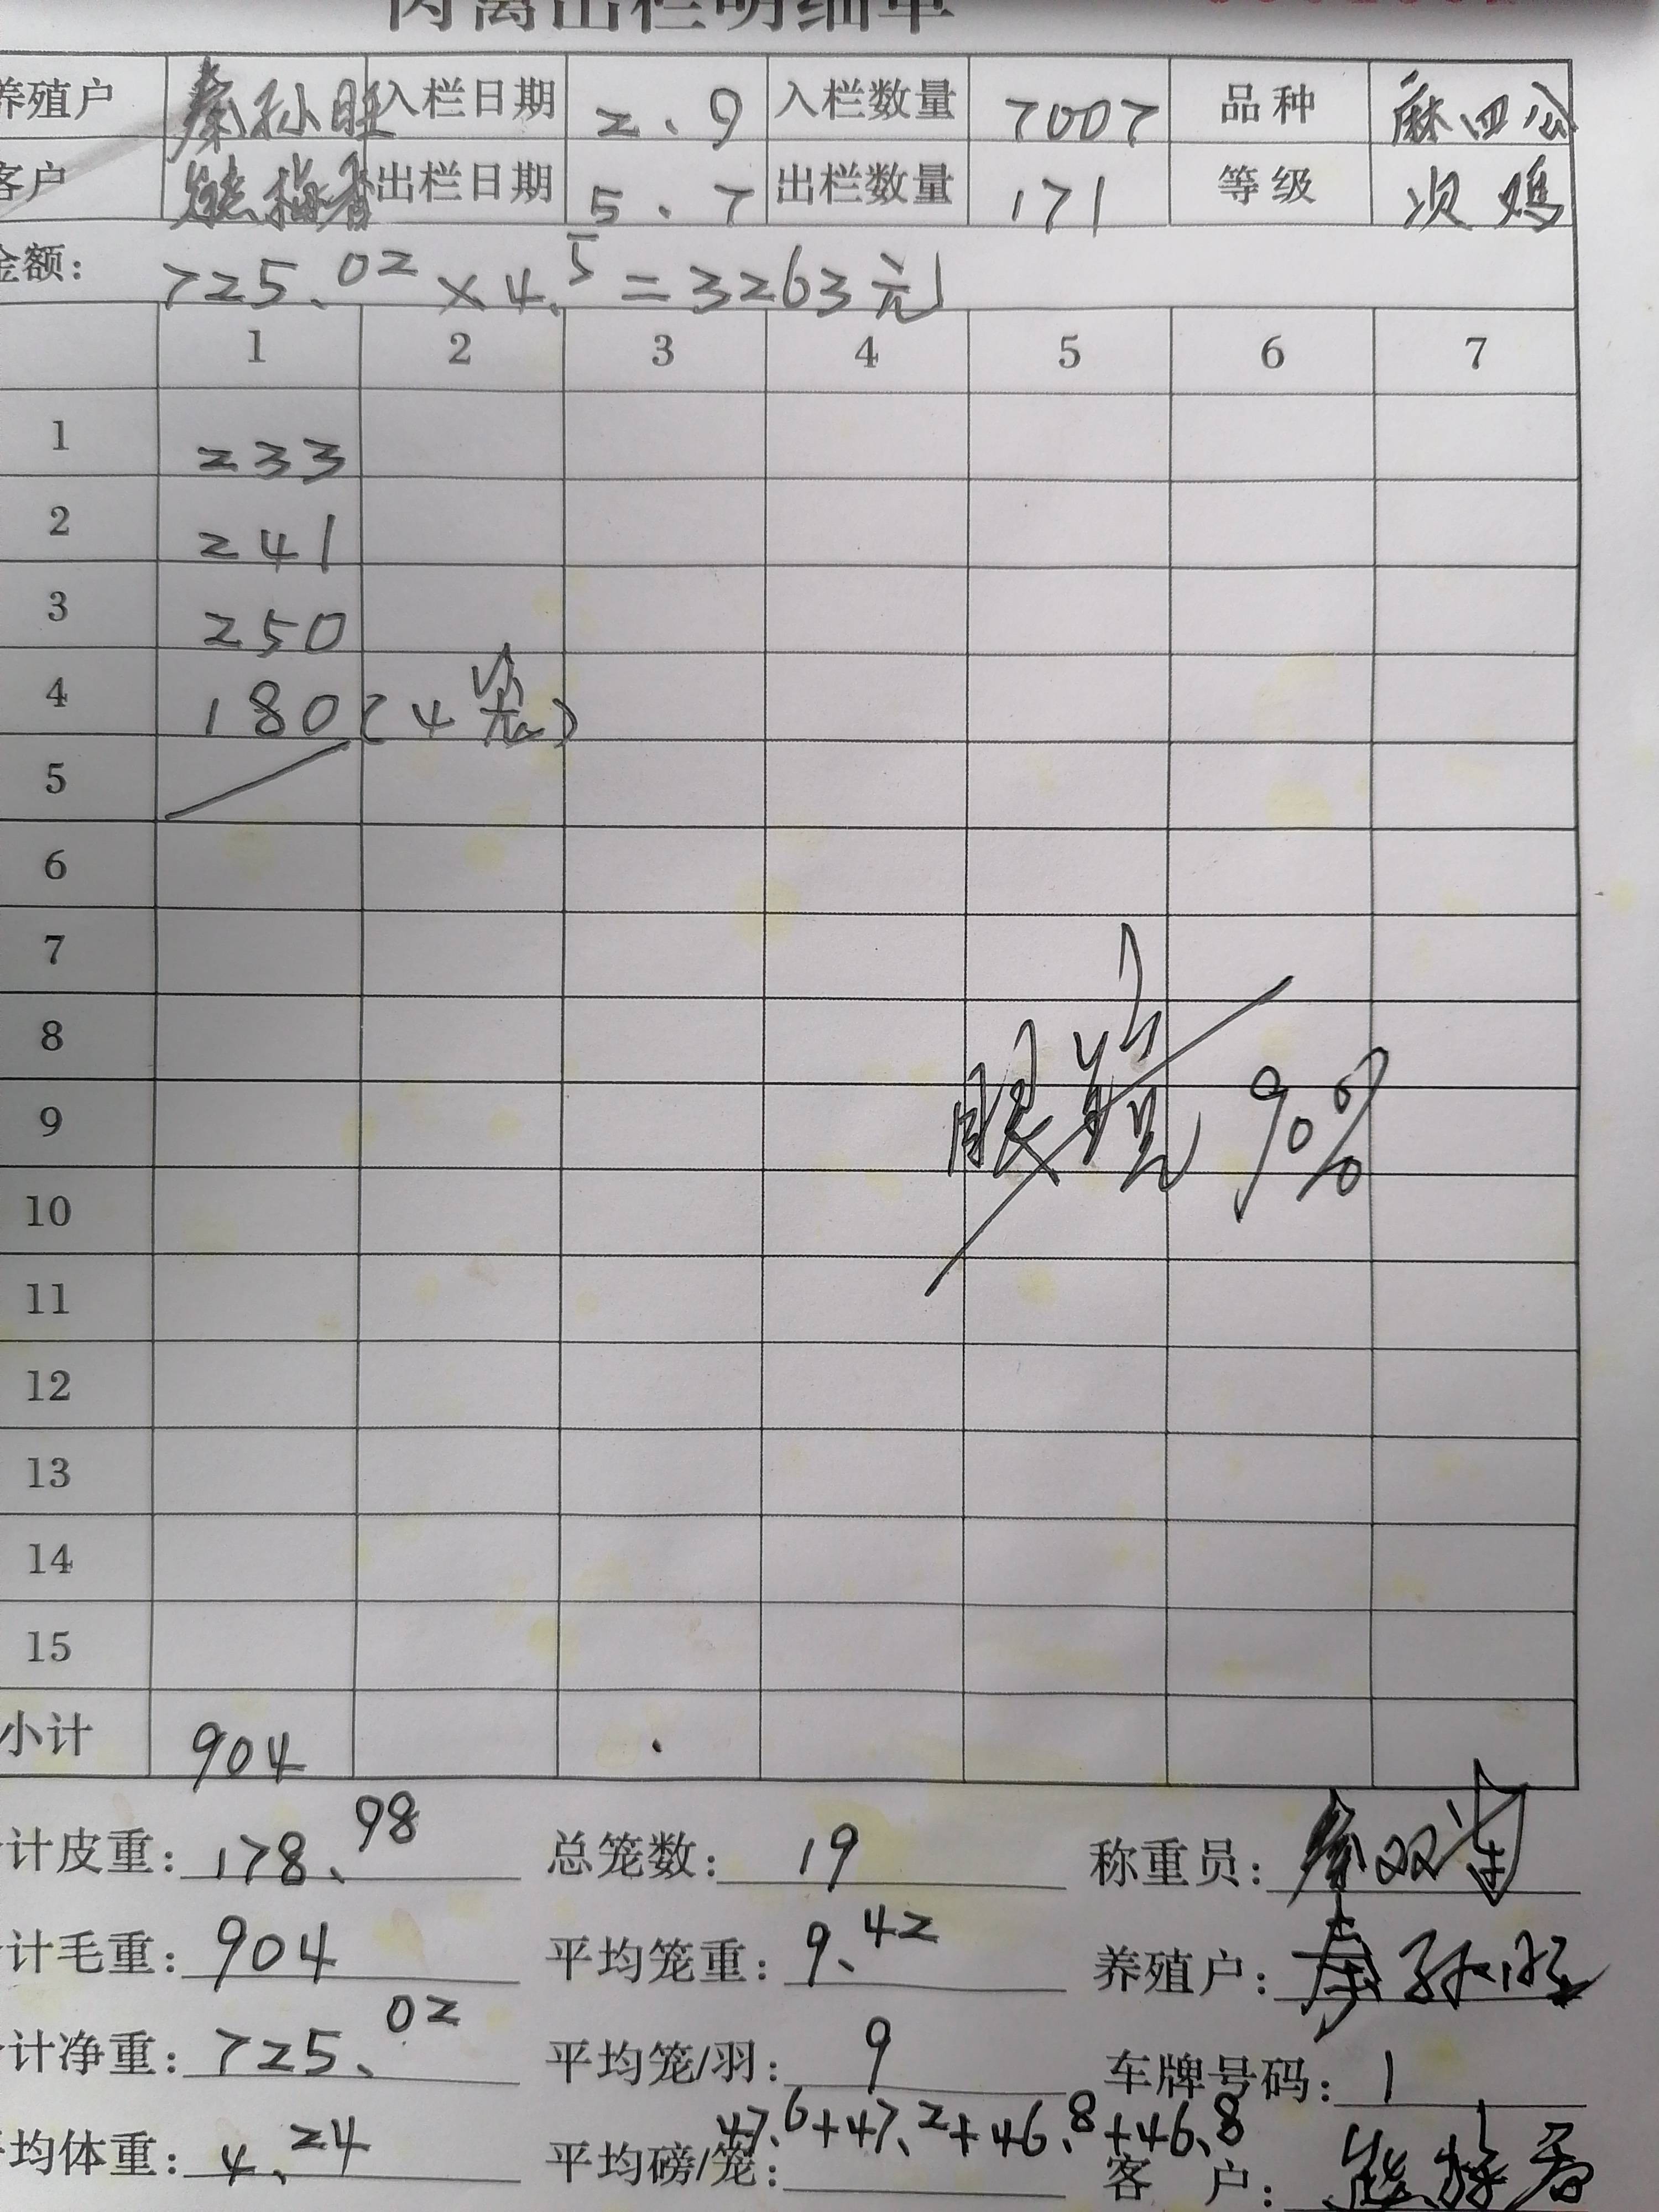 肉禽出栏明细单
养殖户 秦孙旺 入栏日期 2.9 入栏数量 7007 品种 麻四公
客户 熊梅香 出栏日期 5.7 出栏数量 171 等级 次鸡
金额: 725.02×4.5=3263元
1 2 3 4 5 6 7
1 233
2 241
3 250
4 180(4笼)
5
6
7
8
9 眼镜 90%
10
11
12
13
14
15
小计 904
计皮重: 178.98 总笼数: 19 称重员:
计毛重: 904 平均笼重: 9.42 养殖户: 秦孙旺
计净重: 725.02 平均笼/羽: 9 车牌号码: 1
47.6+47.2+46.8+46.8
均体重: 4.24 平均磅/笼: 客户: 熊梅香